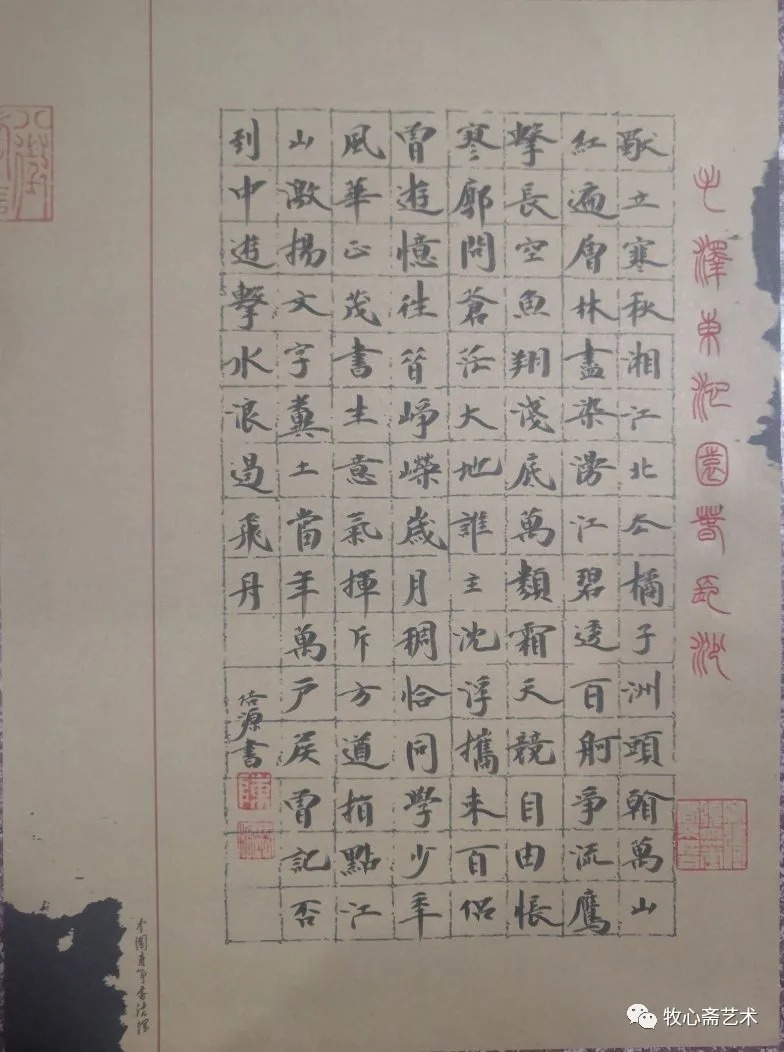 毛澤東沁園春長沙
獨立寒秋湘江北去橘子洲頭看萬山
紅遍層林盡染漫江碧透百舸爭流鷹
擊長空魚翔淺底萬類霜天競自由悵
寥廓問蒼茫大地誰主沈浮攜來百侶
曾遊憶往昔崢嶸歲月稠恰同學少年
風華正茂書生意氣揮斥方遒指點江
山激揚文字糞土當年萬戶侯曾記否
到中遊擊水浪遏飛舟
倍源書
牧心斋艺术